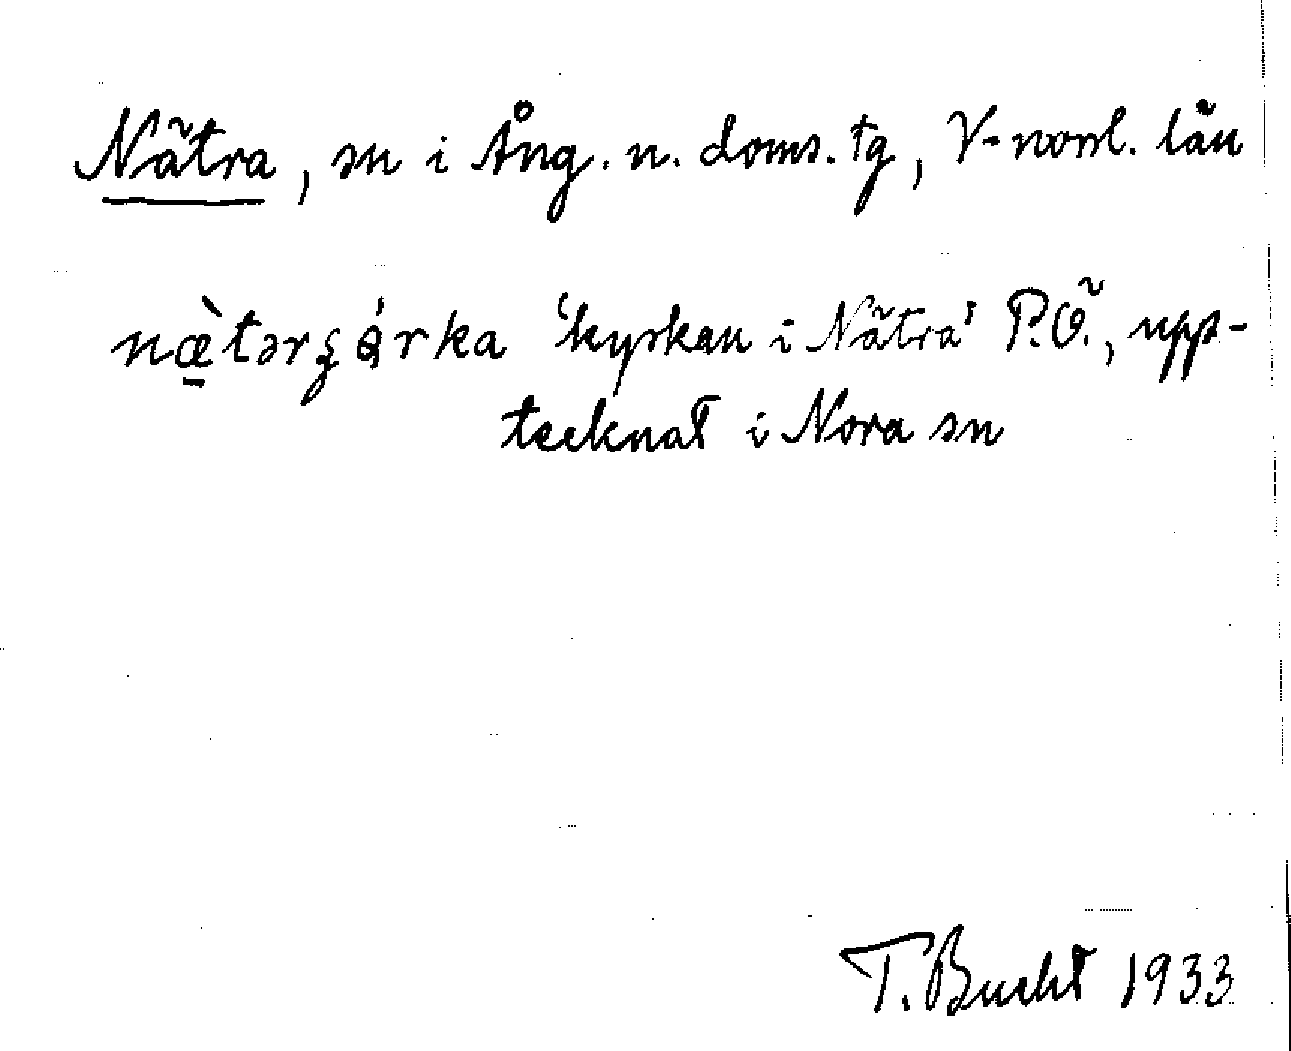 Nätra, sn i Ång. n. doms. tg, V-norrl. län
næ̱̀tərʂǿrka 'kyrkan i Nätra' P.Ö., upp-
tecknat i Nora sn
T. Bucht 1933